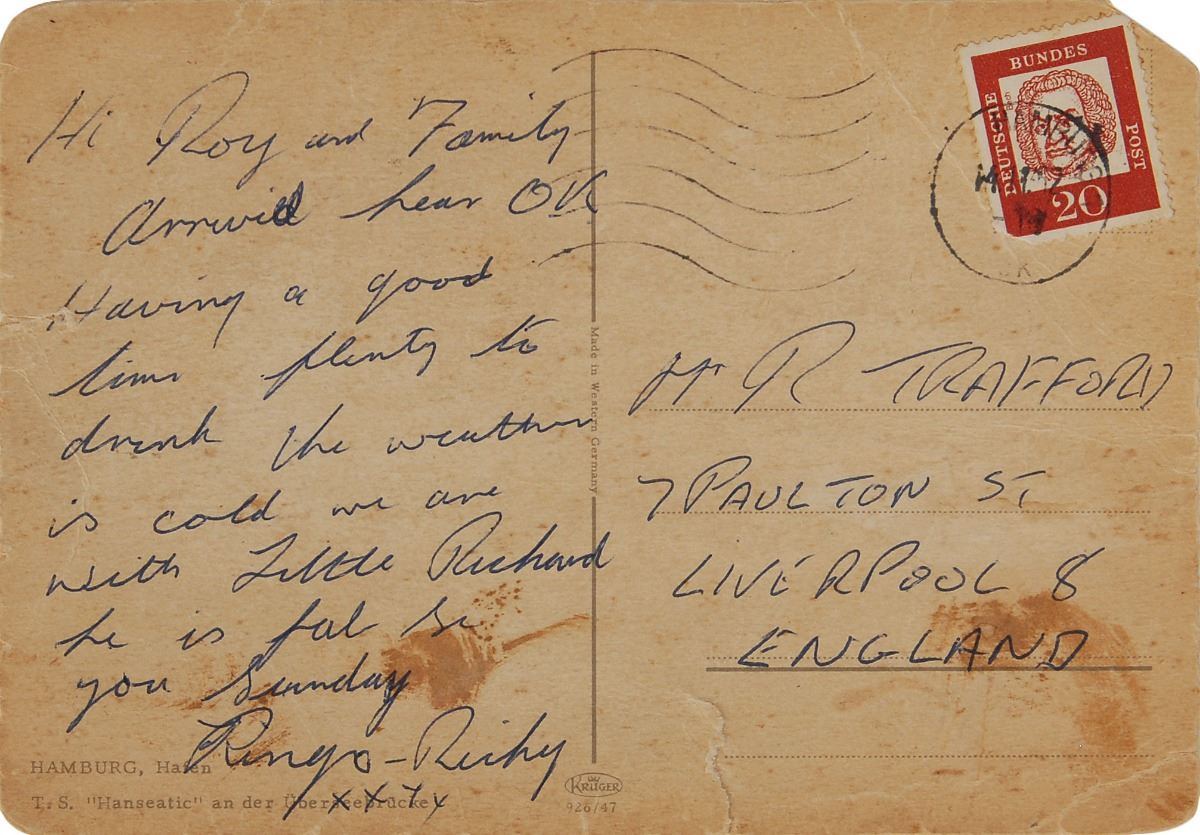 Hi Roy and Family
Arrivied hear OK
Having a good
time plenty to
drink the weather
is cold we are
with Little Richard
he is fab Se
you Sunday
Ringo-Richy
xxxx
HAMBURG, Hafen
T. S. "Hanseatic" an der Überseebrücke
Made in Western Germany
KRÜGER
926/47
DEUTSCHE
BUNDES
POST
20
HAMBURG
Mr R TRAFFORD
7 PAULTON ST
LIVERPOOL 8
ENGLAND